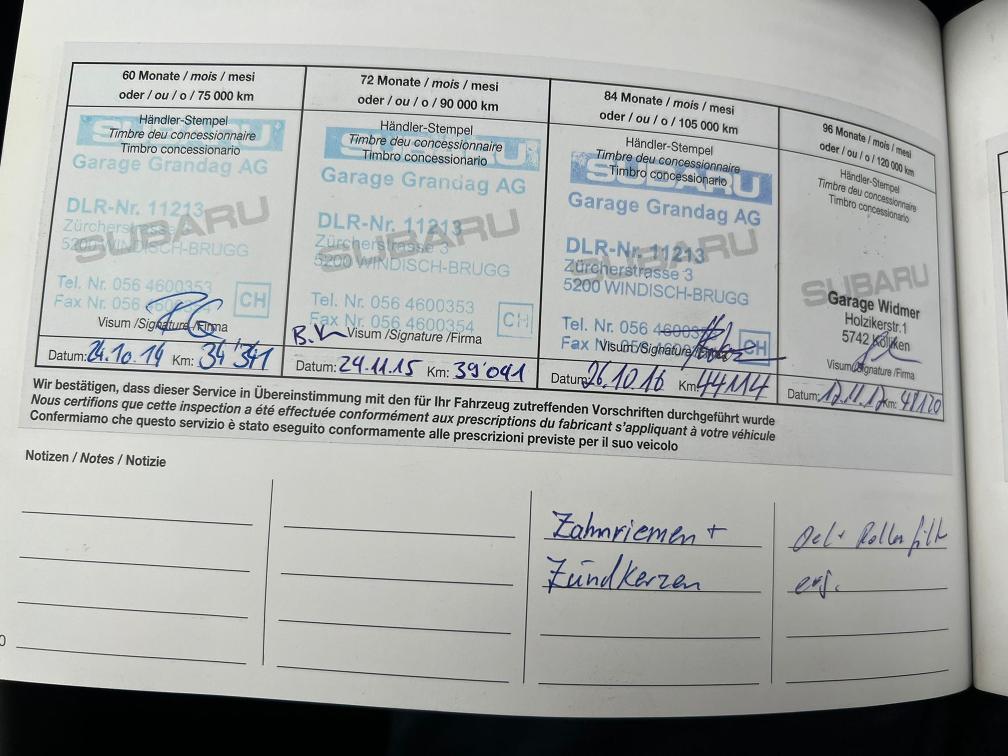 60 Monate / mois / mesi
oder / ou / o / 75 000 km
Händler-Stempel
Timbre deu concessionnaire
Timbro concessionario
SUBARU
Garage Grandag AG
DLR-Nr. 11213
Zürcherstrasse 3
5200 WINDISCH-BRUGG
SUBARU
Tel. Nr. 056 4600353
Fax Nr. 056
CH
Visum /Signature /Firma
Datum: 24.10.14 Km: 34'341
72 Monate / mois / mesi
oder / ou / o / 90 000 km
Händler-Stempel
Timbre deu concessionnaire
Timbro concessionario
SUBARU
Garage Grandag AG
DLR-Nr. 11213
Zürcherstrasse 3
5200 WINDISCH-BRUGG
SUBARU
Tel. Nr. 056 4600353
Fax Nr. 056 4600354
CH
B.K Visum /Signature /Firma
Datum: 24.11.15 Km: 39'091
84 Monate / mois / mesi
oder / ou / o / 105 000 km
Händler-Stempel
Timbre deu concessionnaire
Timbro concessionario
SUBARU
Garage Grandag AG
DLR-Nr. 11213
Zürcherstrasse 3
5200 WINDISCH-BRUGG
SUBARU
Tel. Nr. 056 4600353
Fax Nr. 056
CH
Visum /Signature /Firma
Datum: 26.10.16 Km: 44114
96 Monate / mois / mesi
oder / ou / o / 120 000 km
Händler-Stempel
Timbre deu concessionnaire
Timbro concessionario
SUBARU
Garage Widmer
Holzikerstr.1
5742 Kölliken
Visum /Signature /Firma
Datum: 17.11.17 Km: 48120
Wir bestätigen, dass dieser Service in Übereinstimmung mit den für Ihr Fahrzeug zutreffenden Vorschriften durchgeführt wurde
Nous certifions que cette inspection a été effectuée conformément aux prescriptions du fabricant s'appliquant à votre véhicule
Confermiamo che questo servizio è stato eseguito conformamente alle prescrizioni previste per il suo veicolo
Notizen / Notes / Notizie
Zahnriemen +
Zündkerzen
Oel + Pollenfilt
0